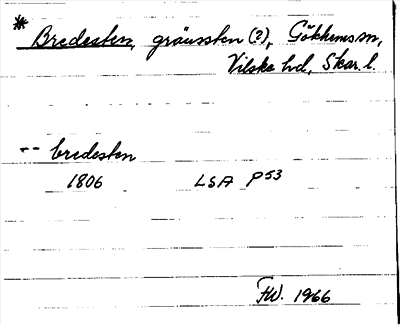 * Bredesten, gränssten (?), Gökhems sn,
Vilske hd, Skar. l.
-- bredesten
1806 LSA P53
F.W. 1966